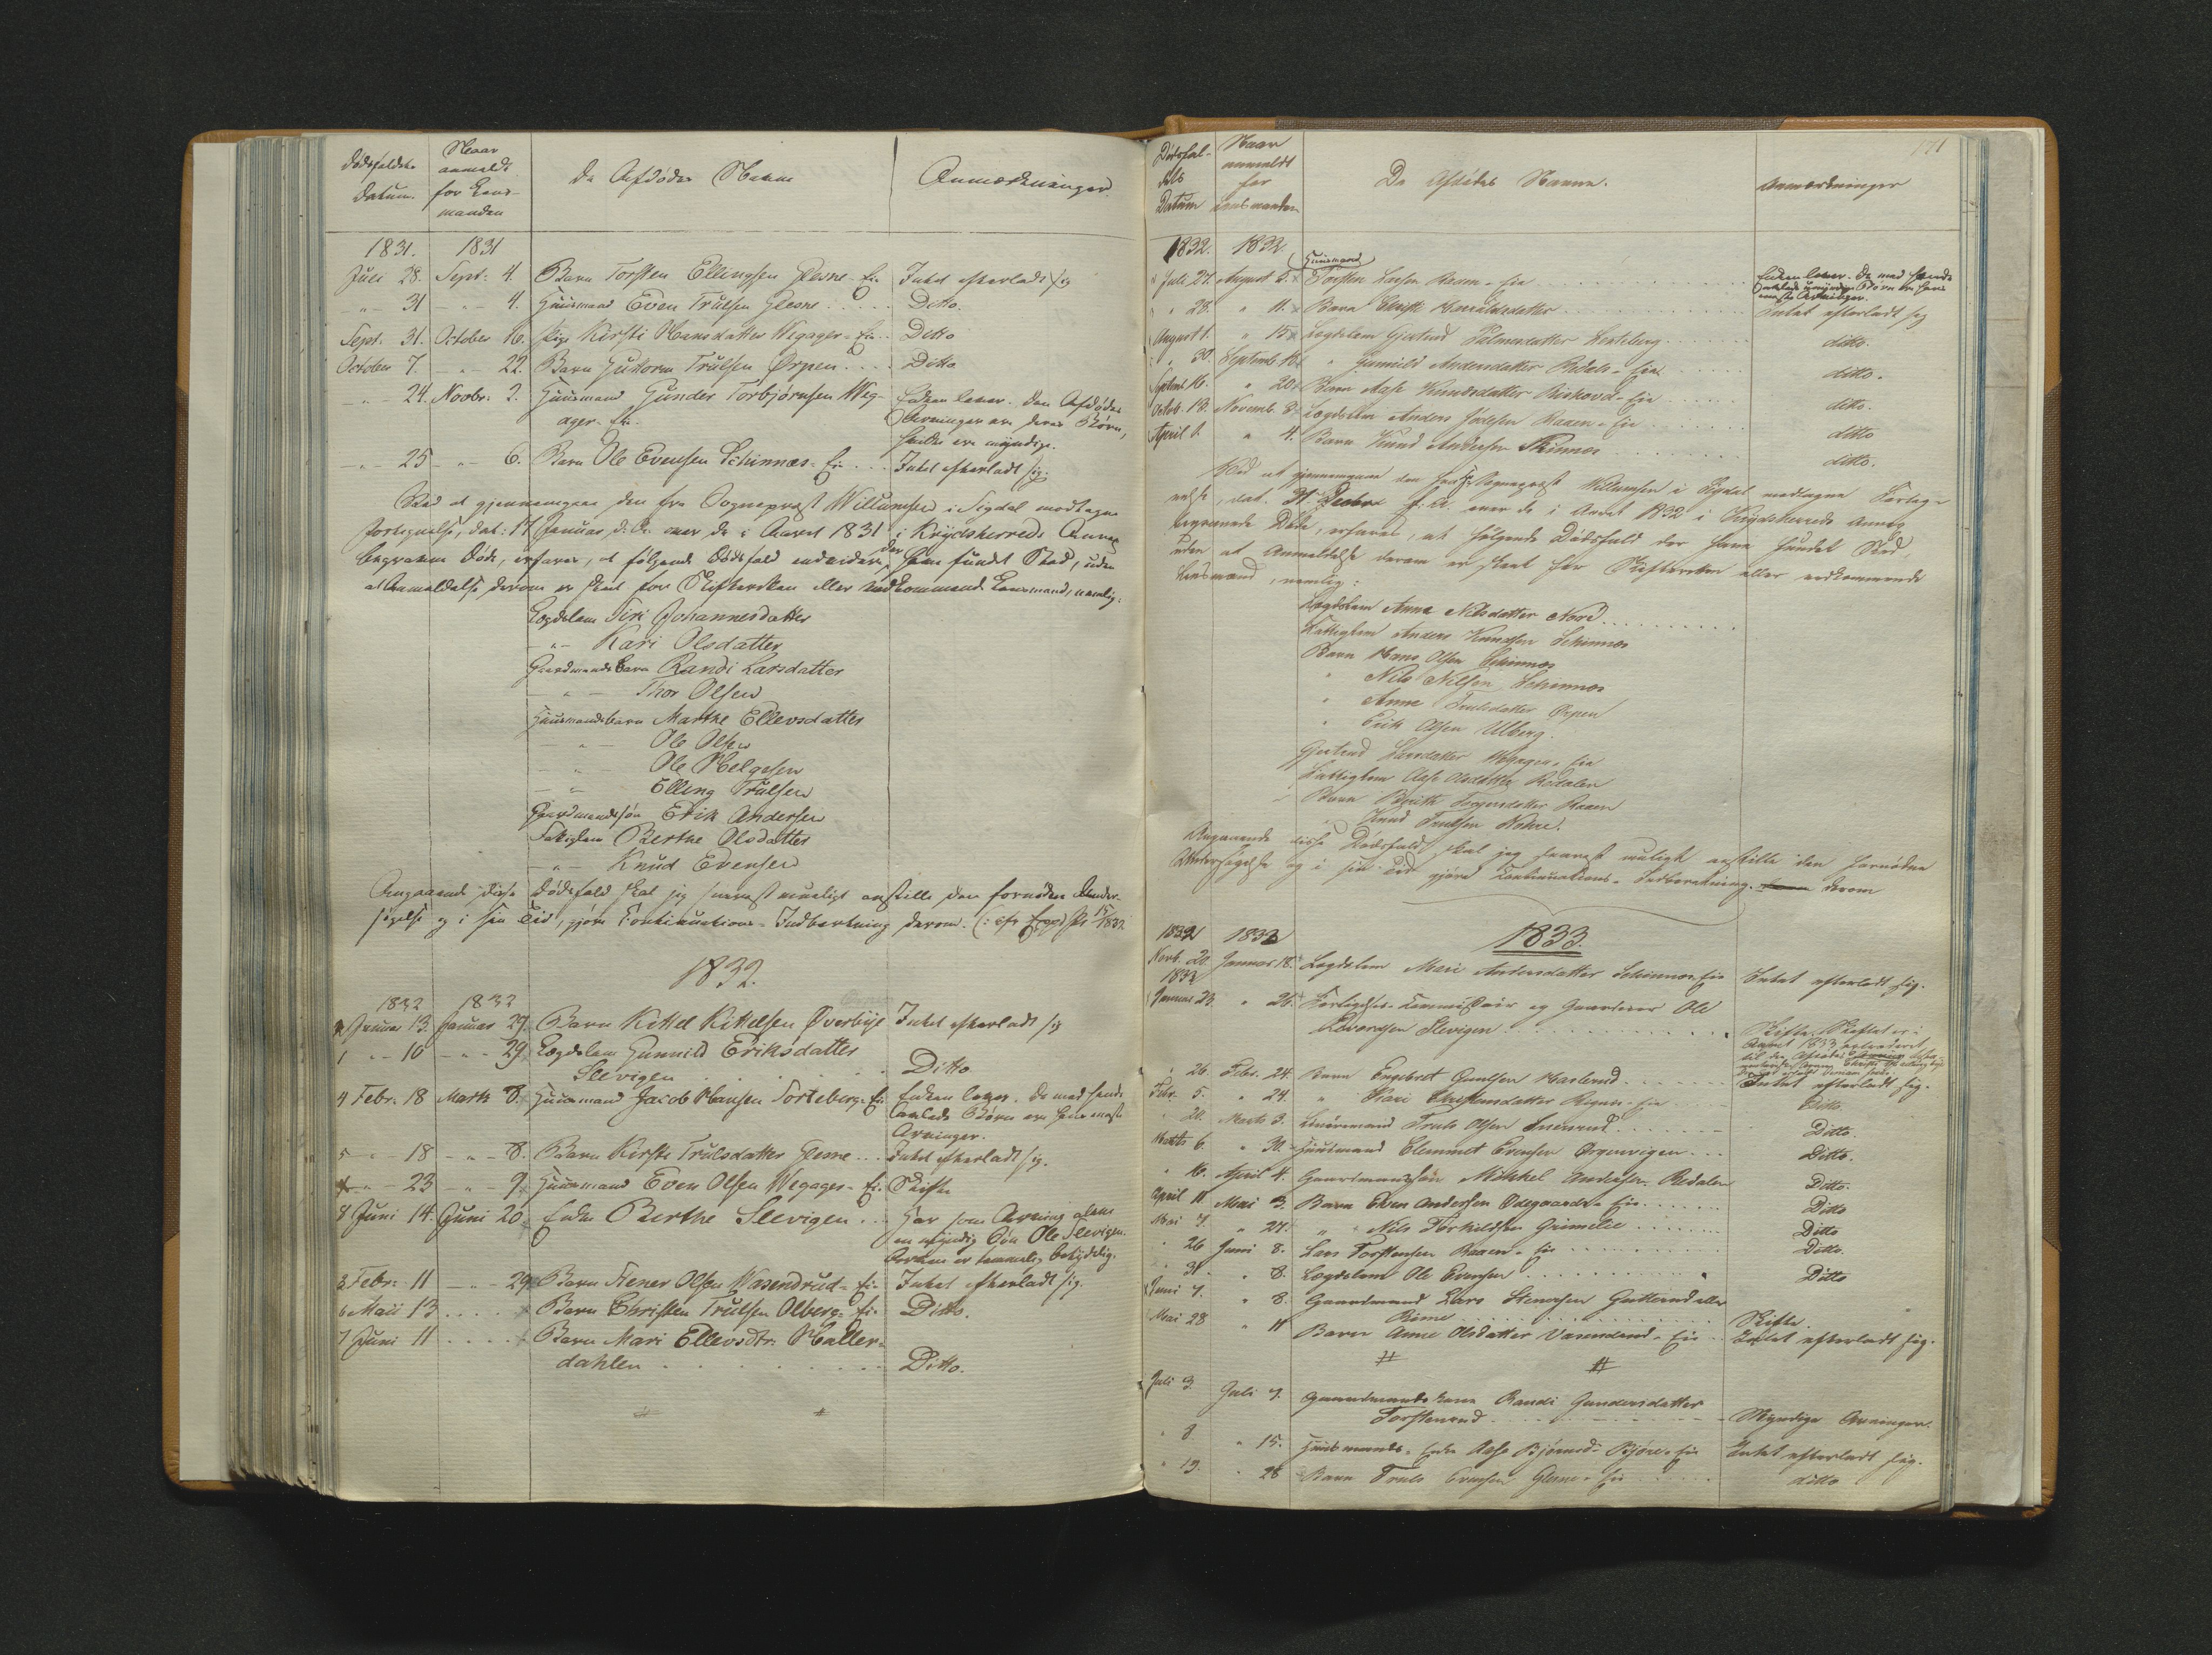 Dødsfaldets
Datum.
Naar
anmeldt
for Lens-
manden
De Afdødes Navne
Anmærkninger.
1831. 1831
Juli 28. Sept: 4. Barn Torsten Ellingsen Glesne-Ei. Intet efterladt sig
-"- 31 -"- 4. Huusmand Even Trulsen Glesne . . . . Ditto.
Sept. 31. October 16. Pige Kirsti Hansdatter Wegager-Ei. . Ditto
October 7. -"- 22. Barn Guttorm Trulsen Ørpen . . . . Ditto
-"- 24. Novbr: 2. Huusmand Gunder Torbjørnsen Weg- Enken lever. Den Afdødes
ager-Ei. Arvinger ere deres Børn,
hvilke ere myndige.
-"- 25 -"- 6. Barn Ole Evensen Schinnes-Ei. . . Intet efterladt sig.
Ved at gjennemgaae den fra Sognepræst Willumsen i Sigdal modtagne
Fortegnelse, dat: 17 Januar d: A: over de i Aaret 1831 i Krydsherreds Annex
begravne Døde, erfares, at følgende Dødsfald endvidere der have fundet Sted, uden
at Anmeldelse derom er skeet for Skifteretten eller vedkommende Lensmand, nemlig:
Lægdslem Siri Johannesdatter
-"- Kari Olsdatter
Gaardmandsbarn Randi Larsdatter
-"- Thor Olsen
Huusmandsbarn Marthe Ellevsdatter
-"- Ole Olsen
-"- Ole Helgesen
-"- Elling Trulsen
Gaardmandssøn Erik Andersen
Fattiglem Berthe Olsdatter
-"- Knud Evensen
Angaaende disse Dødsfald skal jeg snarest mueligt anstille den fornødne Under-
søgelse og i sin Tid, gjøre Continuations-Indberetning derom. 15/ 1832
1832.
1832 1832
Januar 13. Januar 29. Barn Kittel Kittelsen Øverbye Intet efterladt sig
1 -"- 16 -"- 29. Lægdslem Gunnild Eriksdatter
Slevigen . . . . . Ditto
4 Febr: 18 Marts 8. Huusmand Jacob Hansen Torteberg-Ei. Enken lever. De med hende
avlede Børn ere hans næste
Arvinger.
5 -"- 18 -"- 8. Barn Kirsti Trulsdatter Glesne . . . Intet efterladt sig.
-"- 23 -"- 9. Huusmand Even Olsen Wegager-Ei. Skifte
8 Juni 14. Juni 20. Enke Berthe Slevigen . . . Har som Arving alene
en myndig Søn Ole Slevigen.
Arven er temmelig betydelig.
3 Febr: 11 -"- 29. Barn Stener Olsen Wasendrud-Ei. Intet efterladt sig.
6 Maii 13 . . . . Barn Christen Trulsen Olberg-Ei. Ditto.
7 Juni 11 . . . . Barn Mari Ellevsdtr: Haller-
dahlen . . . . . Ditto.
171
Dødsfal-
dets
Datum
Naar
anmeldt
for
Lensmanden
De Afdødes Navne.
Anmærkninger
1832. 1832.
Huusmand
Juli 27. August 5. Torsten Larsen Raaen-Eie . . . . Enken lever. De med hende
avlede umyndige Børn ere hans
næste Arvinger.
" 28. " 11. Barn Christi Haraldsdatter . . . . Intet efterladt sig
August 1. " 15. Lægdslem Gjertrud Palmesdatter Lerteberg . . . ditto.
" 30. Septemb. 16. " Gunnild Andersdatter Redals-Eie . . . ditto.
Septemb. 16. " 20. Barn Aase Knudsdatter Biskoved-Eie . . . ditto.
Octob. 13. Novemb. 3. Lægdslem Anders Joelsen Raaen-Eie . . . ditto
April 1. " 4. Barn Knud Andersen Skinnes . . . ditto.
Ved at gjennemgaae den fra Hr. Sognepræst Willumsen i Sigdal modtagne Forteg-
nelse, dat. 31. Decbr f. A. over de i Aaret 1832 i Krydsherreds Annex
begravede Døde, erfares, at følgende Dødsfald der have fundet Sted,
uden at Anmeldelse derom er skeet for Skifteretten eller vedkommende
Lensmand, nemlig:
Lægdslem Anna Nilsdatter Nord . . . .
Fattiglem Anders Knudsen Schinnes
Barn Hans Olsen Schinnes
" Nils Nilsen Schinnes
" Anne Trulsdatter Ørpen
" Erik Olsen Ulberg.
Gjertrud Larsdatter Wegager-Eie
Fattiglem Aase Olsdatter Redalen
Barn Berith Torgersdatter Raaen
" Knud Trulsen Nohre.
Angaaende disse Dødsfald skal jeg snarest muligt anstille den fornødne
Undersøgelse og i sin Tid gjøre Continuations-Indberetning derom
1833.
1832 1833
Novb. 20. Januar 18. Lægdslem Mari Andersdatter Schinnes-Eie Intet efterladt sig.
1833
Januar 23. " 26. Forligelses-Commissair og Gaardeier Ole
Edvardsen Slevigen . . . . Skifte. Skiftet er i
Aaret 1833
" 26. Febr. 24. Barn Engebret Gundsen Haslerud . . . Intet efterladt sig.
Febr. 5. " 24. " Kari Christensdatter -Eie . . . Ditto.
" 20. Marts 3. Truls Olsen . . . Ditto.
Marts 6. " 30. Huusmand Clemmet Evensen Ørpenvigen . . . Ditto.
" 16. April 4. Gaardmandssøn Mikkel Andersen Redalen Ditto.
April 11 Mai 3. Barn Even Andersen Ødegaards-Eie . . . Ditto
Mai 7. " 27. " Nils Torkildsen Grimelie . . . Ditto
" 26 Juni 8. Lars Torstensen Raaen-Eie . . . Ditto.
" 31. " 8. Lægdslem Ole Evensen . . . Ditto
Juni 7. " 8. Gaardmand Lars Stenersen Gutterud eller
Rime . . . Skifte.
Mai 28 " 11 Barn Anne Olsdatter Vasendrud-Eie . . Intet efterladt sig.
Juli 3. Juli 7. Gaardmandskone Randi Gundersdatter
Torstenrud . . . Myndige Arvinger.
" 8. " 15. Huusmands-Enke Aase Bjørnsd. Bjøre-Eie Intet efterladt sig.
" 19. " 28 Barn Truls Evensen Glesne-Eie . . . ditto